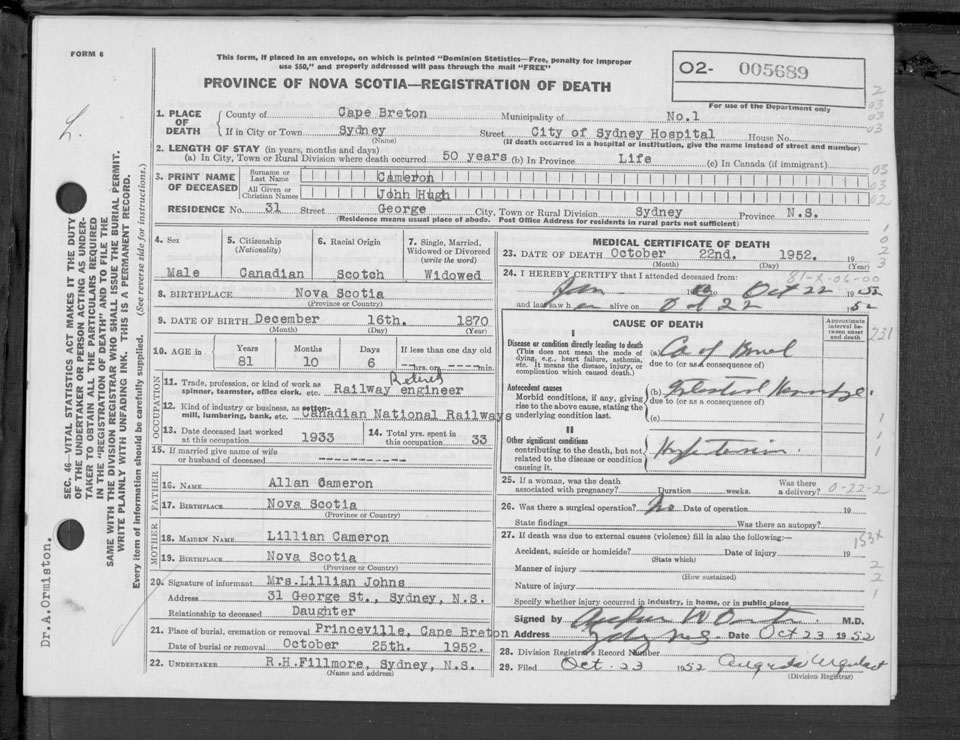 FORM 6
This form, if placed in an envelope, on which is printed "Dominion Statistics—Free, penalty for improper
use $50," and properly addressed will pass through the mail "FREE"
PROVINCE OF NOVA SCOTIA—REGISTRATION OF DEATH
02- 005689
For use of the Department only
1. PLACE OF DEATH
County of Cape Breton Municipality of No.1
If in City or Town Sydney Street City of Sydney Hospital House No.
(Name) (If death occurred in a hospital or institution, give the name instead of street and number)
2. LENGTH OF STAY (in years, months and days)
(a) In City, Town or Rural Division where death occurred 50 years (b) In Province Life (c) In Canada (if immigrant)
3. PRINT NAME OF DECEASED
Surname or Last Name Cameron
All Given or Christian Names John Hugh
RESIDENCE No. 31 Street George City, Town or Rural Division Sydney Province N.S.
(Residence means usual place of abode. Post Office Address for residents in rural parts not sufficient)
4. Sex
Male
5. Citizenship (Nationality)
Canadian
6. Racial Origin
Scotch
7. Single, Married, Widowed or Divorced (write the word)
Widowed
8. BIRTHPLACE Nova Scotia
(Province or Country)
9. DATE OF BIRTH December 16th. 1870
(Month) (Day) (Year)
10. AGE in Years Months Days If less than one day old
81 10 6 hrs. or min.
OCCUPATION
11. Trade, profession or kind of work as spinner, teamster, office clerk, etc. Retired Railway engineer
12. Kind of industry or business, as cotton-mill, lumbering, bank, etc. Canadian National Railways
13. Date deceased last worked at this occupation 1933
14. Total yrs. spent in this occupation 33
15. If married give name of wife or husband of deceased
FATHER
16. NAME Allan Cameron
17. BIRTHPLACE Nova Scotia
(Province or Country)
MOTHER
18. MAIDEN NAME Lillian Cameron
19. BIRTHPLACE Nova Scotia
(Province or Country)
20. Signature of informant Mrs.Lillian Johns
Address 31 George St., Sydney, N.S.
Relationship to deceased Daughter
21. Place of burial, cremation or removal Princeville, Cape Breton
Date of burial or removal October 25th. 1952.
22. UNDERTAKER R.H.Fillmore, Sydney, N.S.
(Name and address)
MEDICAL CERTIFICATE OF DEATH
23. DATE OF DEATH October 22nd. 1952. 19
(Month) (Day) (Year)
24. I HEREBY CERTIFY that I attended deceased from:
Jan to Oct 22 1952
and last saw h alive on Oct 22 1952
CAUSE OF DEATH
Approximate interval between onset and death
I
Disease or condition directly leading to death
(This does not mean the mode of dying, e.g., heart failure, asthenia, etc. It means the disease, injury, or complication which caused death.)
(a) Ca of Bowel
due to (or as a consequence of)
Antecedent causes
Morbid conditions, if any, giving rise to the above cause, stating the underlying condition last.
(b)
due to (or as a consequence of)
(c)
II
Other significant conditions
contributing to the death, but not related to the disease or condition causing it.
Hypertension.
25. If a woman, was the death associated with pregnancy? Duration weeks. Was there a delivery? 0-22-2
26. Was there a surgical operation? No Date of operation 19
State findings Was there an autopsy?
27. If death was due to external causes (violence) fill in also the following:—
Accident, suicide or homicide? Date of injury 19
(State which)
Manner of injury
(How sustained)
Nature of injury
Specify whether injury occurred in industry, in home, or in public place
Signed by M.D.
Address Sydney N.S. Date Oct 23 1952
28. Division Registrar's Record Number
29. Filed Oct. 23 1952 Augusta Urquhart
(Division Registrar)
SEC. 46—VITAL STATISTICS ACT MAKES IT THE DUTY
OF THE UNDERTAKER OR PERSON ACTING AS UNDER-
TAKER TO OBTAIN ALL THE PARTICULARS REQUIRED
IN THE "REGISTRATION OF DEATH" AND TO FILE THE
SAME WITH THE DIVISION REGISTRAR WHO SHALL ISSUE THE BURIAL PERMIT.
WRITE PLAINLY WITH UNFADING INK. THIS IS A PERMANENT RECORD.
Every item of information should be carefully supplied. (See reverse side for instructions.)
Dr.A.Ormiston.